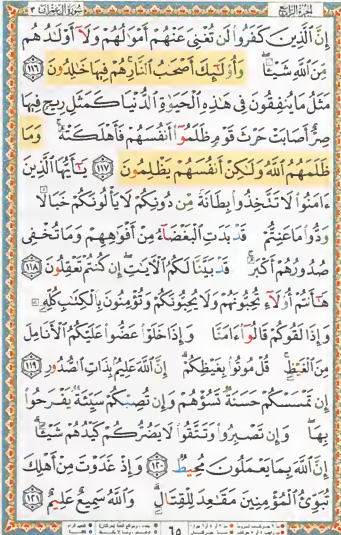 الجزء الرابع سورة آل عمران ٣
إِنَّ ٱلَّذِينَ كَفَرُوا۟ لَن تُغْنِىَ عَنْهُمْ أَمْوَٰلُهُمْ وَلَآ أَوْلَٰدُهُم
مِّنَ ٱللَّهِ شَيْـًٔا ۖ وَأُو۟لَٰٓئِكَ أَصْحَٰبُ ٱلنَّارِ ۚ هُمْ فِيهَا خَٰلِدُونَ ١١٦
مَثَلُ مَا يُنفِقُونَ فِى هَٰذِهِ ٱلْحَيَوٰةِ ٱلدُّنْيَا كَمَثَلِ رِيحٍ فِيهَا
صِرٌّ أَصَابَتْ حَرْثَ قَوْمٍ ظَلَمُوٓا۟ أَنفُسَهُمْ فَأَهْلَكَتْهُ ۚ وَمَا
ظَلَمَهُمُ ٱللَّهُ وَلَٰكِنْ أَنفُسَهُمْ يَظْلِمُونَ ١١٧ يَٰٓأَيُّهَا ٱلَّذِينَ
ءَامَنُوا۟ لَا تَتَّخِذُوا۟ بِطَانَةً مِّن دُونِكُمْ لَا يَأْلُونَكُمْ خَبَالًا
وَدُّوا۟ مَا عَنِتُّمْ قَدْ بَدَتِ ٱلْبَغْضَآءُ مِنْ أَفْوَٰهِهِمْ وَمَا تُخْفِى
صُدُورُهُمْ أَكْبَرُ ۚ قَدْ بَيَّنَّا لَكُمُ ٱلْـَٔايَٰتِ ۖ إِن كُنتُمْ تَعْقِلُونَ ١١٨
هَٰٓأَنتُمْ أُو۟لَآءِ تُحِبُّونَهُمْ وَلَا يُحِبُّونَكُمْ وَتُؤْمِنُونَ بِٱلْكِتَٰبِ كُلِّهِۦ
وَإِذَا لَقُوكُمْ قَالُوٓا۟ ءَامَنَّا وَإِذَا خَلَوْا۟ عَضُّوا۟ عَلَيْكُمُ ٱلْأَنَامِلَ
مِنَ ٱلْغَيْظِ ۚ قُلْ مُوتُوا۟ بِغَيْظِكُمْ ۗ إِنَّ ٱللَّهَ عَلِيمٌۢ بِذَاتِ ٱلصُّدُورِ ١١٩
إِن تَمْسَسْكُمْ حَسَنَةٌ تَسُؤْهُمْ وَإِن تُصِبْكُمْ سَيِّئَةٌ يَفْرَحُوا۟
بِهَا ۖ وَإِن تَصْبِرُوا۟ وَتَتَّقُوا۟ لَا يَضُرُّكُمْ كَيْدُهُمْ شَيْـًٔا ۗ
إِنَّ ٱللَّهَ بِمَا يَعْمَلُونَ مُحِيطٌ ١٢٠ وَإِذْ غَدَوْتَ مِنْ أَهْلِكَ
تُبَوِّئُ ٱلْمُؤْمِنِينَ مَقَٰعِدَ لِلْقِتَالِ ۗ وَٱللَّهُ سَمِيعٌ عَلِيمٌ ١٢١
٦٥